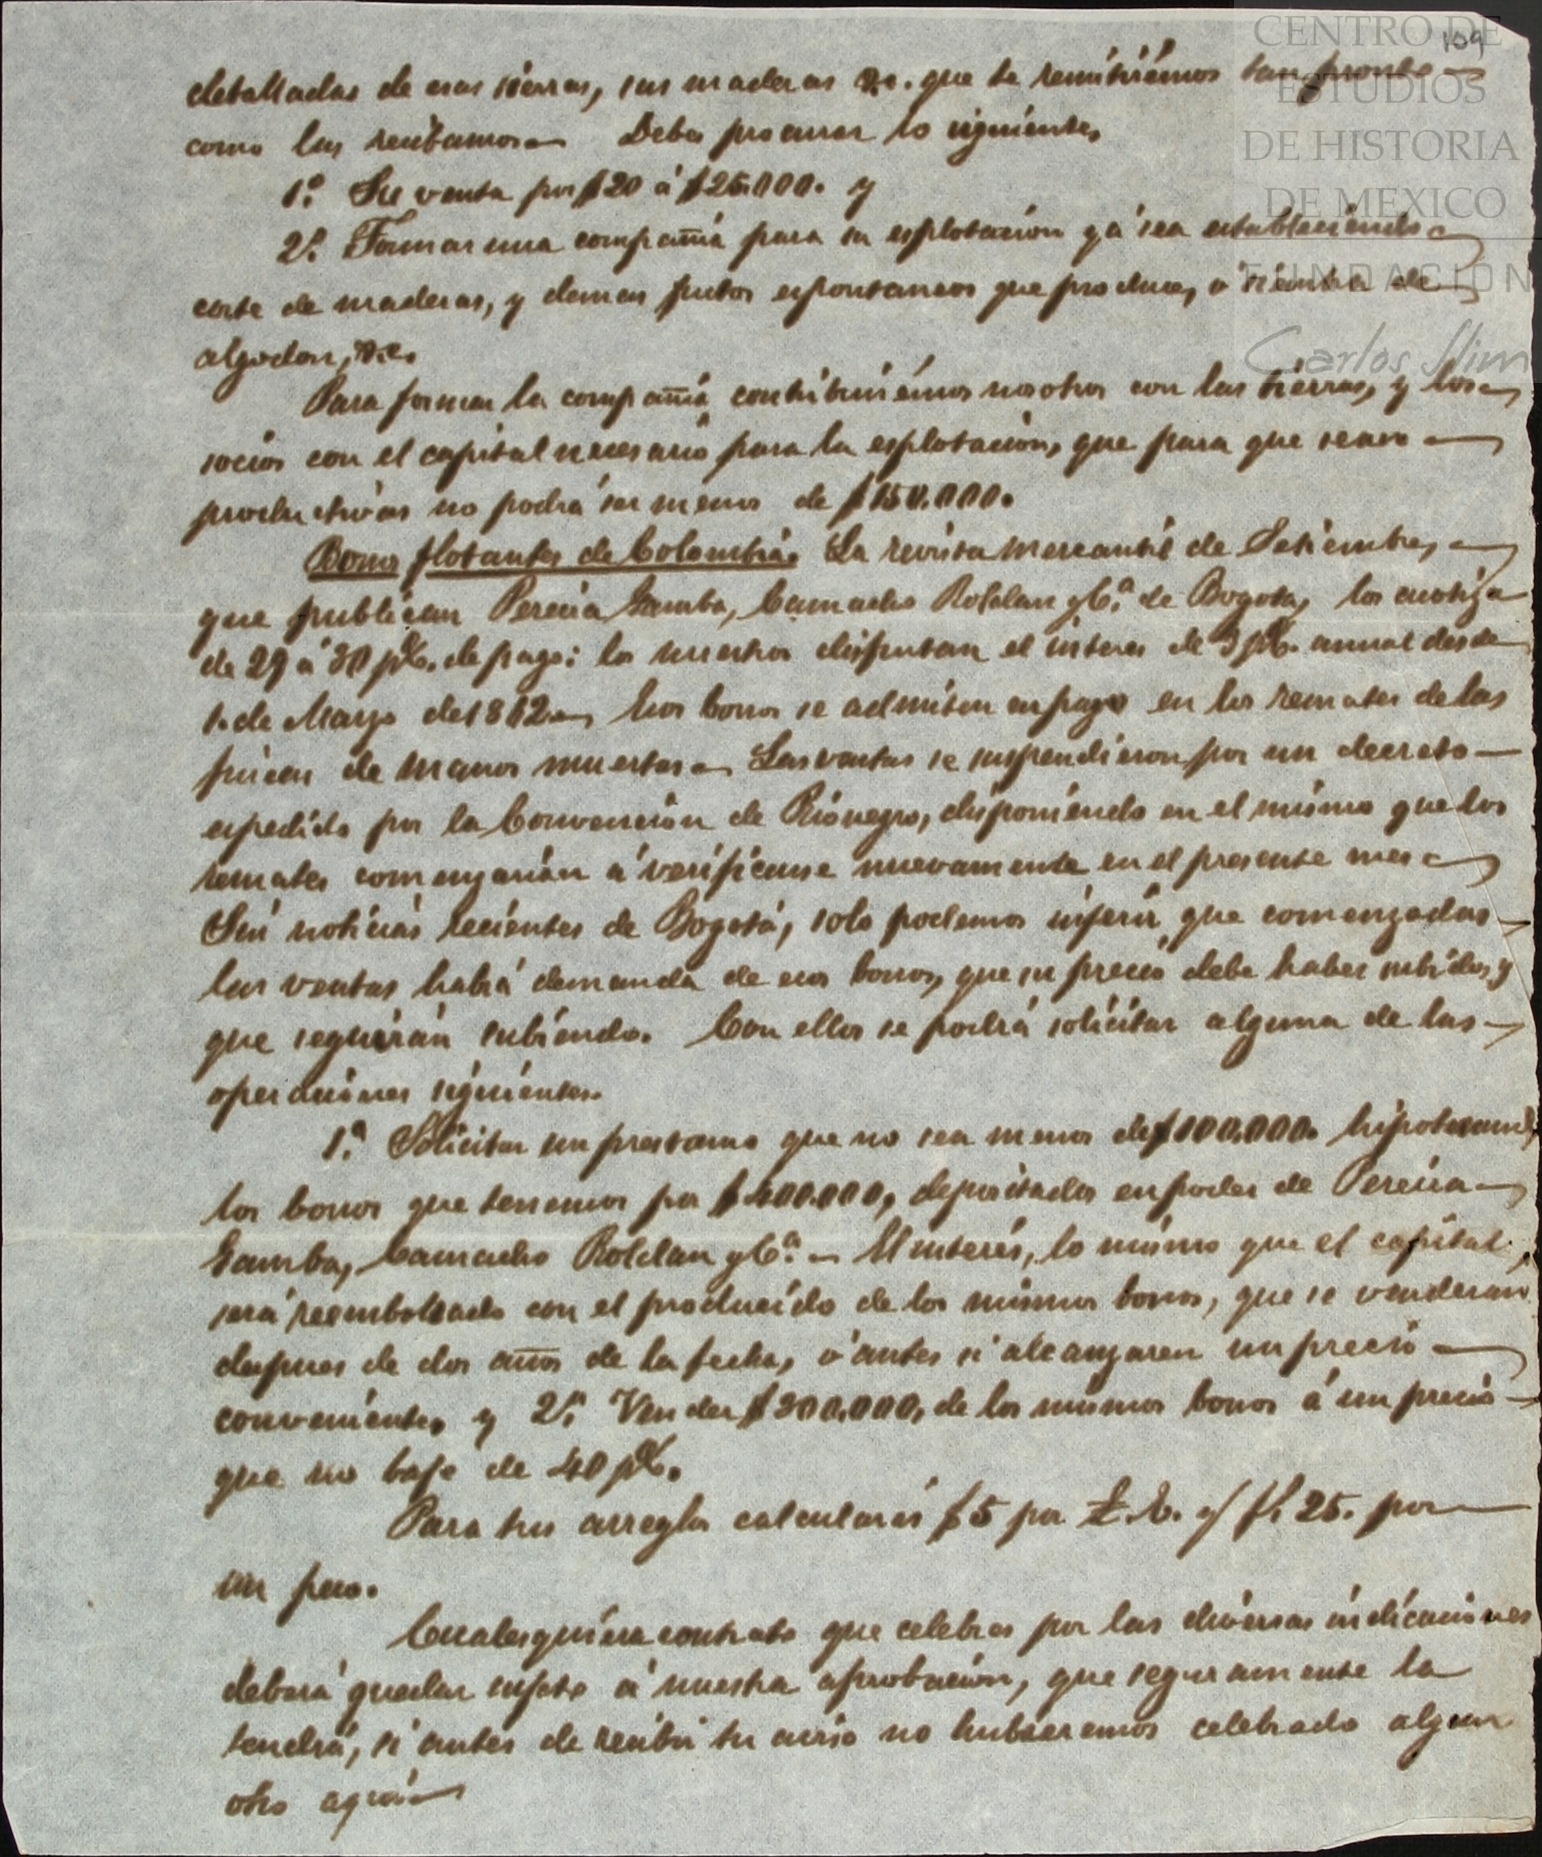 109
CENTRO DE
ESTUDIOS
DE HISTORIA
DE MEXICO
FUNDACIÓN
Carlos Slim
detalladas de esas tierras, sus maderas &c. que te remitirémos tan pronto
como las recibamos. Debes procurar lo siguiente,
1.º Su venta por $20 á $25.000. y
2.º Formar una compañia para su esplotacion yá sea estableciendo
corte de maderas, y demas frutos espontaneos que produce, ó siembra de
algodon, &c.
Para formar la compañia contribuirémos nosotros con las tierras, y los
socios con el capital necesario para la esplotacion, que para que sean
productivas no podrá ser menos de $150.000.
Bonos flotantes de Colombia. La revista mercantil de Setiembre,
que publican Pereira Gamba, Camacho Roldan y Ca. de Bogota, los cotiza
de 29 á 30 p%. de pago: los nuestros disfrutan el interes de 3 p%. annal desde
1. de Marzo de 1862. Los bonos se admiten en pago en los remates de las
fincas de manos muertas. Las ventas se suspendieron por un decreto
espedido por la Convencion de Rionegro, disponiendo en el mismo que los
remates comenzarían á verificarse nuevamente en el presente mes
Sin noticias recientes de Bogotá, solo podemos inferir que comenzadas
las ventas habrá demanda de esos bonos, que su precio debe haber subido, y
que seguirán subiendo. Con ellos se podrá solicitar alguna de las
operaciones siguientes.
1.ª Solicitar un prestamo que no sea menos de $100.000. hipotecand
los bonos que tenemos por $400.000, depositados en poder de Pereira
Gamba, Camacho Roldan y Ca. El interés, lo mismo que el capital,
será reembolsado con el producido de los mismos bonos, que se venderán
despues de dos años de la fecha, ó antes si alcanzaren un precio
conveniente, y 2.ª Vender $300.000, de los mismos bonos á un precio
que no baje de 40 p%.
Para tus arreglos calcularás $5 por £. E. y f. 25. por
un peso.
Cualesquiera contrato que celebres por las diversas indicaciones
deberá quedar sujeto á nuestra aprobacion, que seguramente la
tendrá, si antes de recibir tu aviso no hubieremos celebrado algun
otro aquí